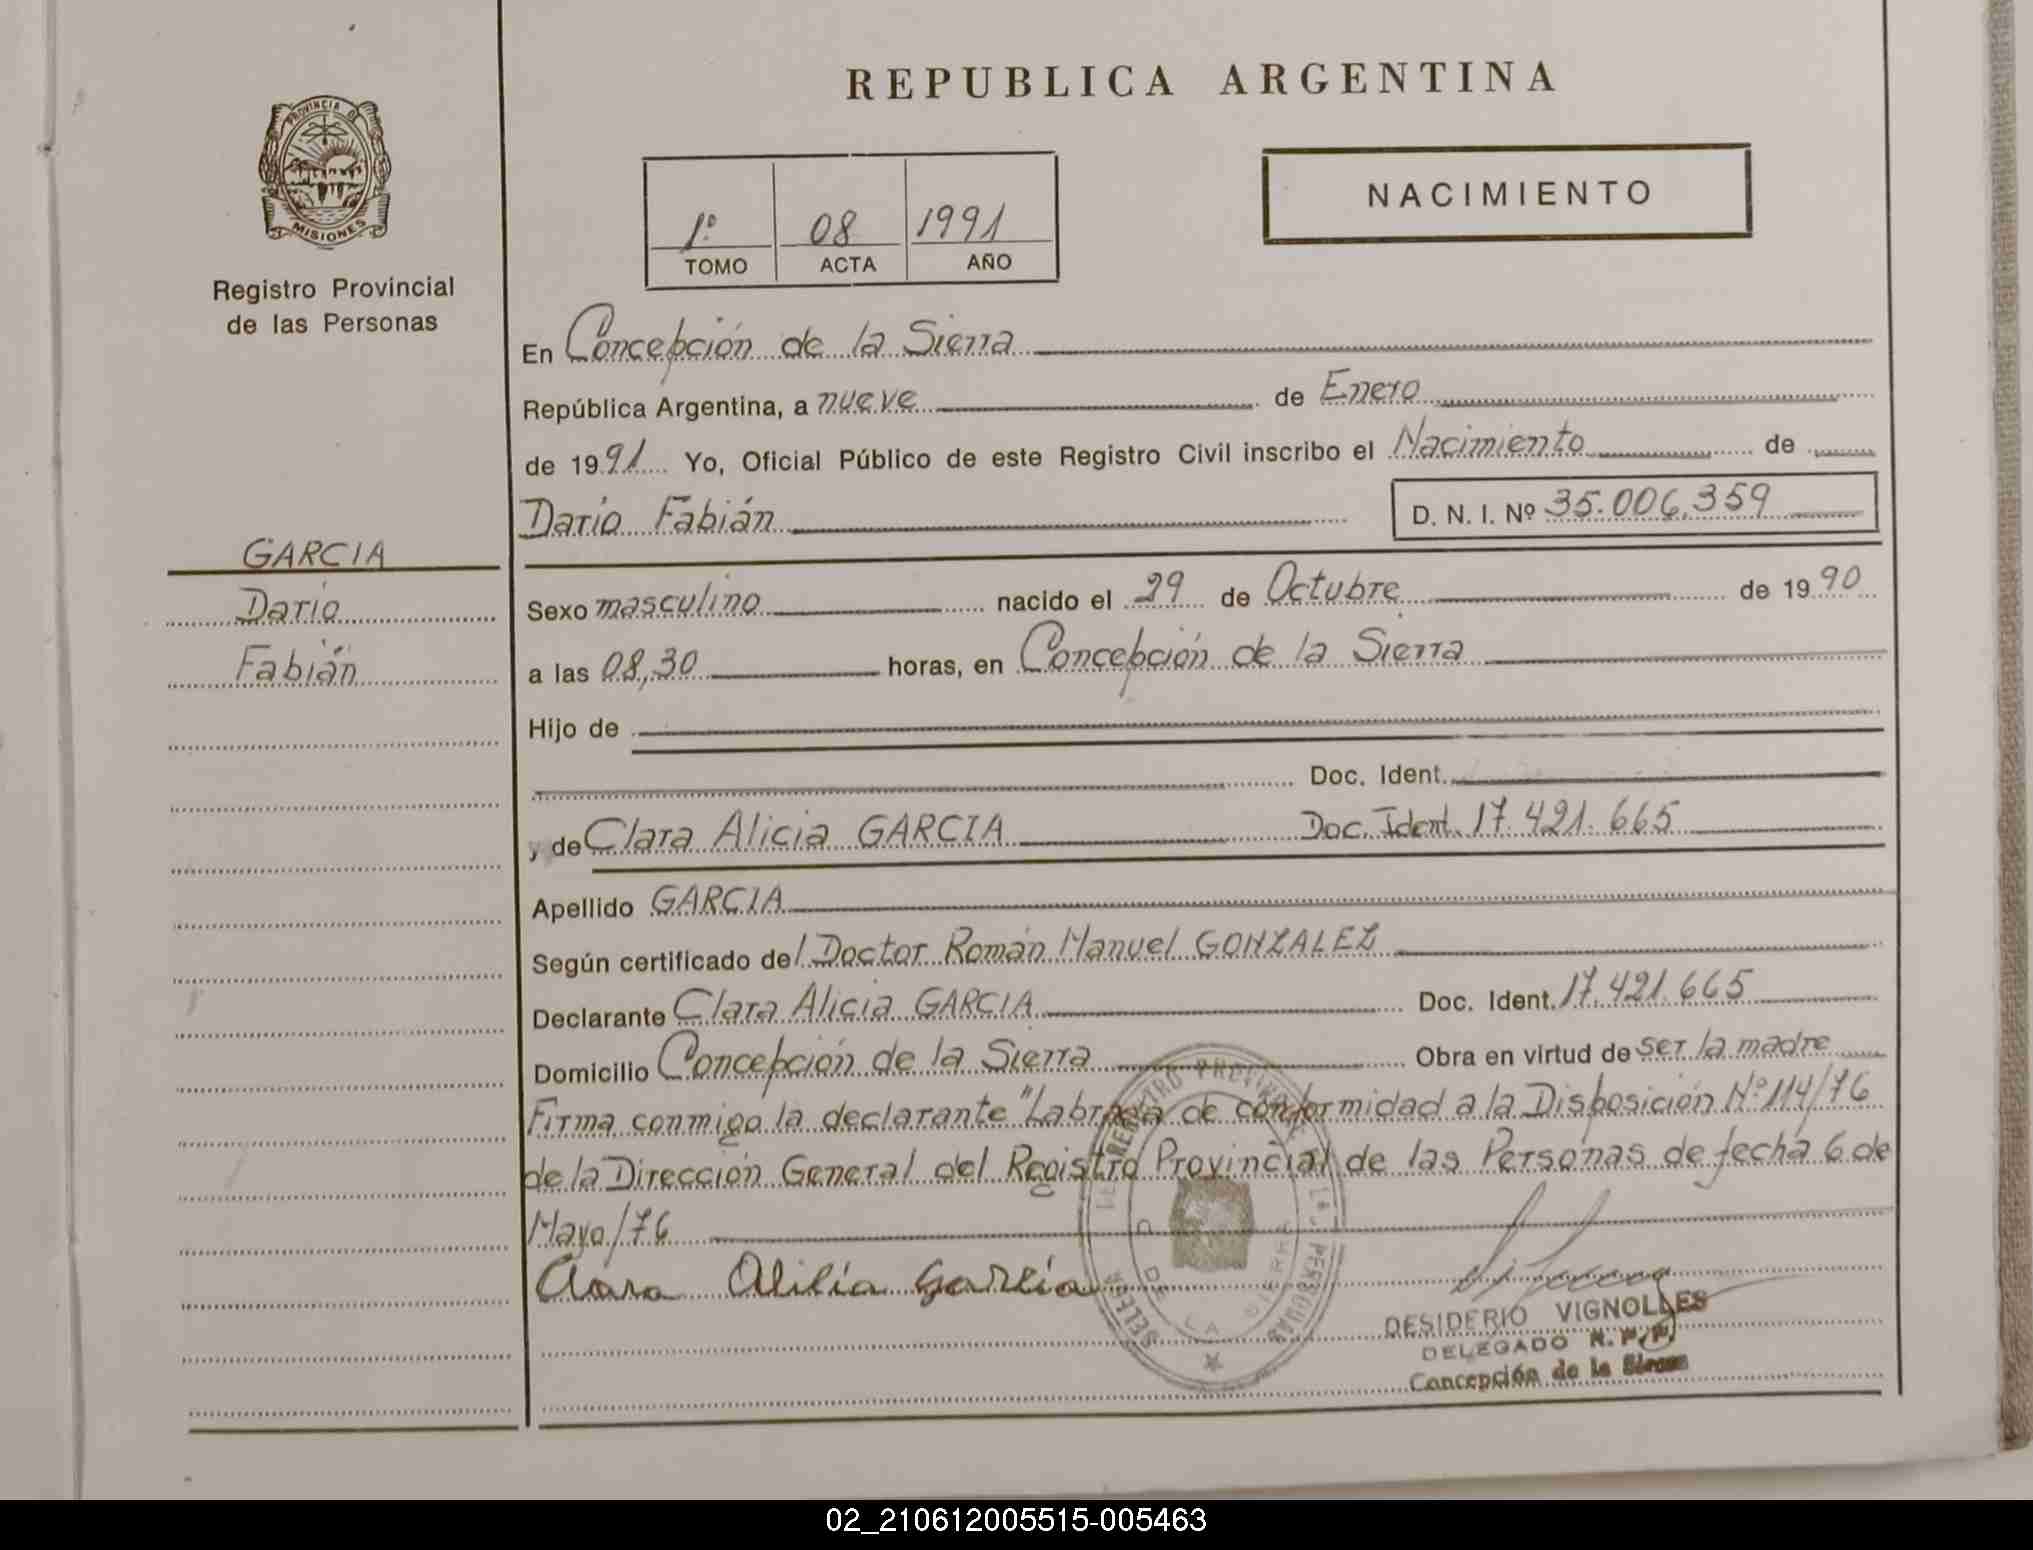 REPUBLICA ARGENTINA
PROVINCIA DE
MISIONES
Registro Provincial
de las Personas
1º 08 1991
TOMO ACTA AÑO
NACIMIENTO
En Concepción de la Sierra
República Argentina, a nueve de Enero
de 1991 Yo, Oficial Público de este Registro Civil inscribo el Nacimiento de
Dario Fabián D. N. I. Nº 35.006.359
GARCIA
Dario
Fabián
Sexo masculino nacido el 29 de Octubre de 1990
a las 08,30 horas, en Concepción de la Sierra
Hijo de
Doc. Ident.
y de Clara Alicia GARCIA Doc. Ident. 17.421.665
Apellido GARCIA
Según certificado del Doctor Román Manuel GONZALEZ
Declarante Clara Alicia GARCIA Doc. Ident. 17.421.665
Domicilio Concepción de la Sierra Obra en virtud de ser la madre
Firma conmigo la declarante "Labrada de conformidad a la Disposición Nº 114/76
de la Dirección General del Registro Provincial de las Personas de fecha 6 de
Mayo/76
Clara Alicia García
DESIDERIO VIGNOLLES
DELEGADO R. P. P.
Concepción de la Sierra
02_210612005515-005463